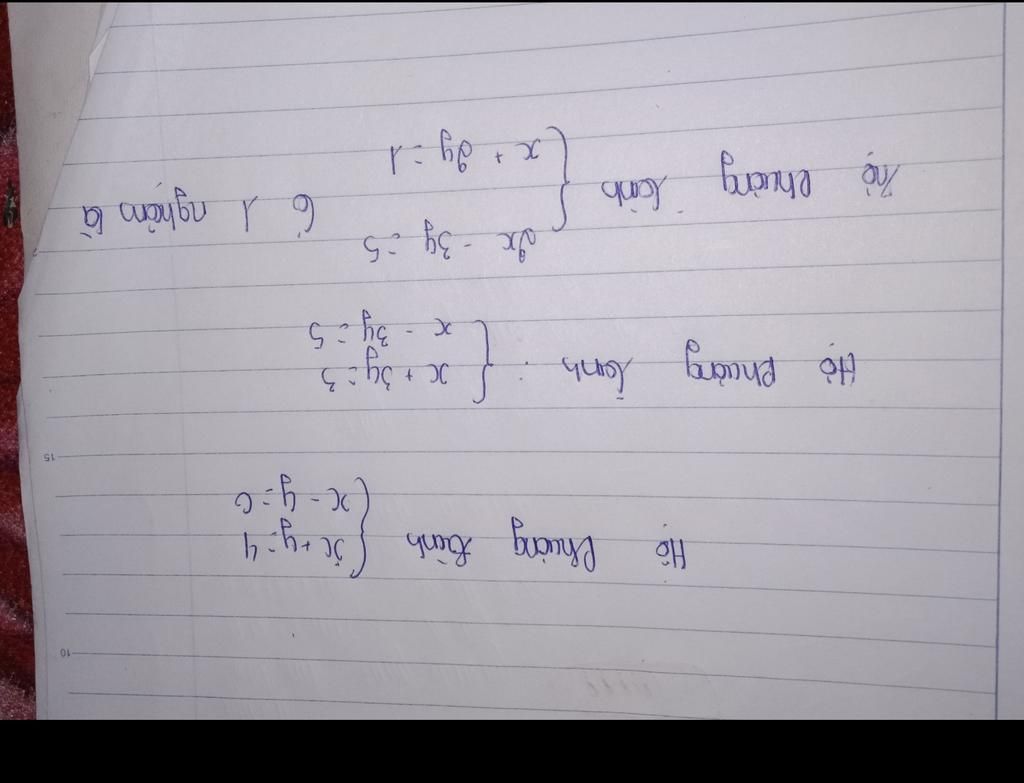 Hệ phương trình { x + y = 4
x - y = 0
Hệ phương trình : { x + 3y = 3
x - 3y = 5
2x - 3y = 5
Hệ phương trình { x + 2y = 1 Có 1 nghiệm là
10
15